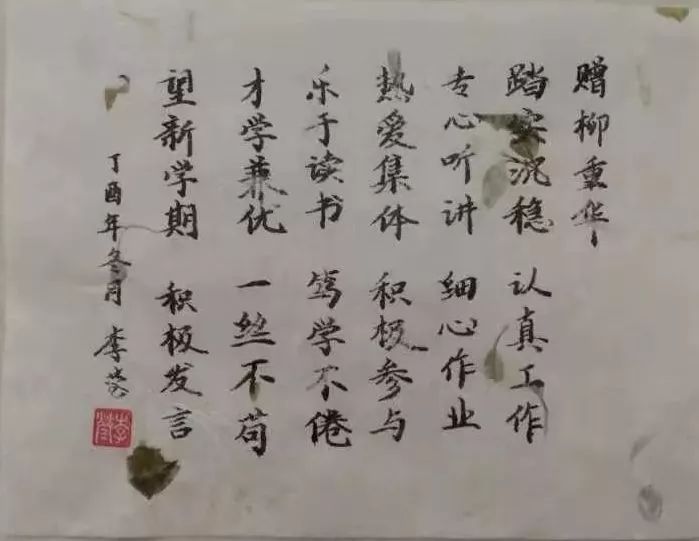 赠柳重华
踏实沉稳 认真工作
专心听讲 细心作业
热爱集体 积极参与
乐于读书 笃学不倦
才学兼优 一丝不苟
望新学期 积极发言
丁酉年冬月 李